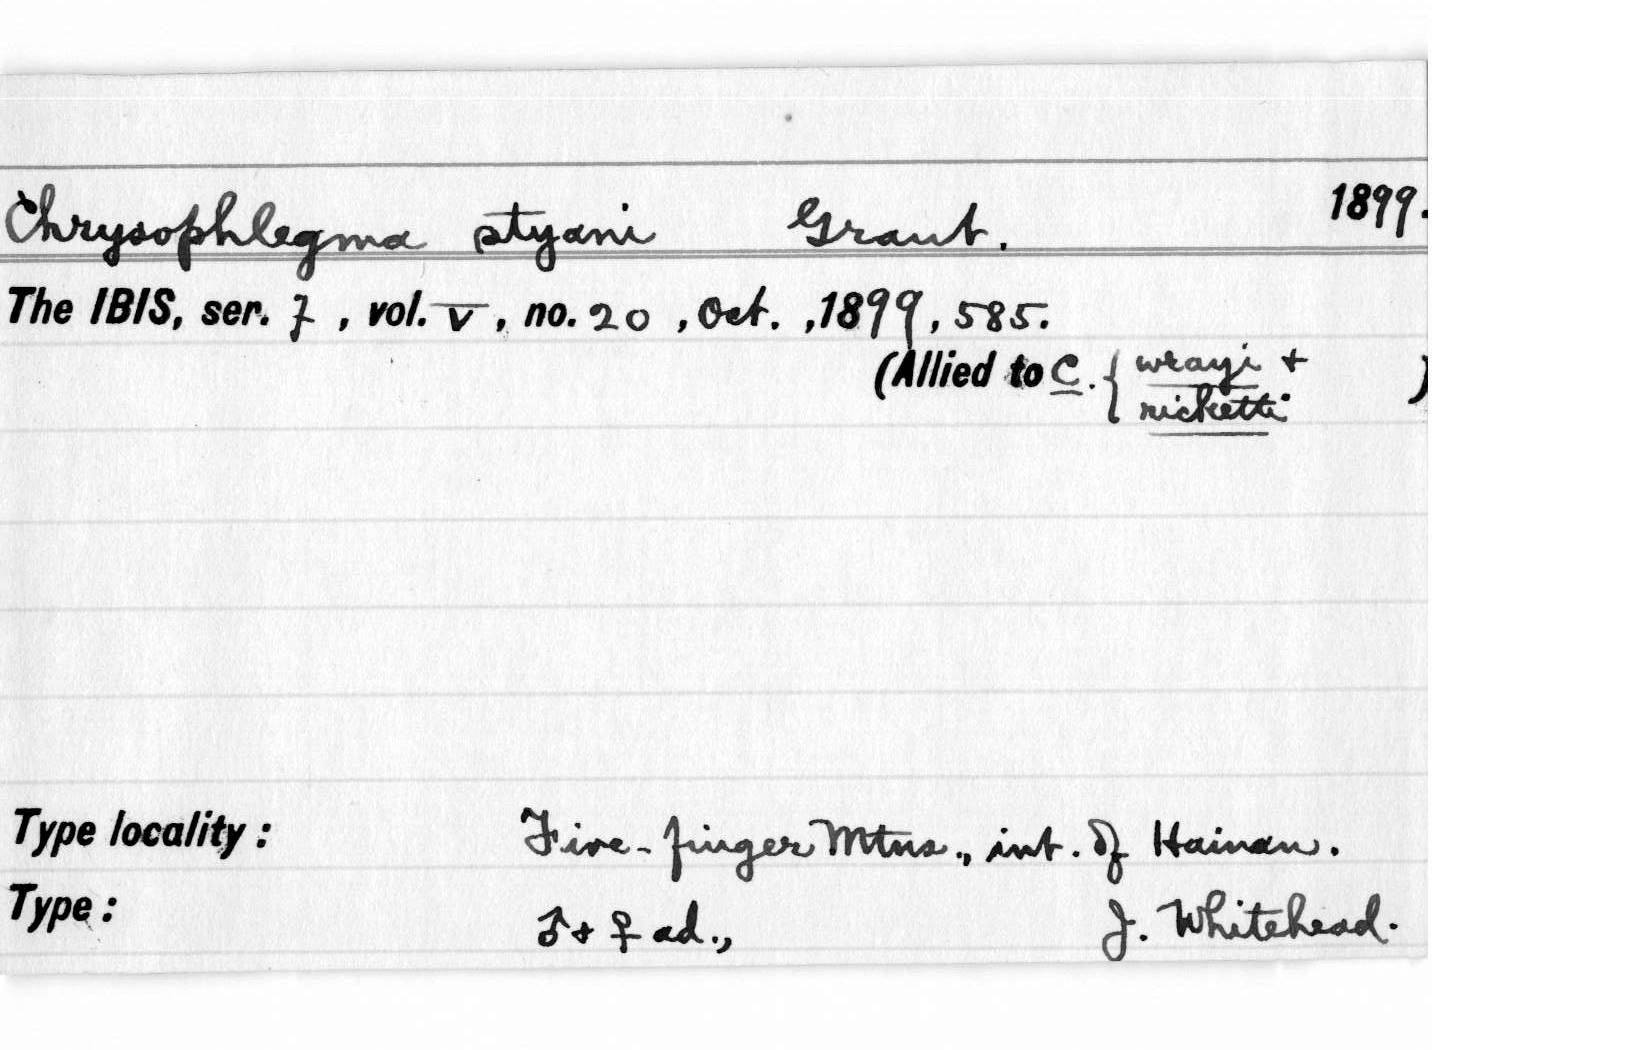 Chrysophlegma styani Grant. 1899.
The IBIS, ser. 7, vol. V, no. 20, Oct., 1899, 585.
(Allied to C. { wrayi +
ricketti )
Type locality: Five-finger Mtns., int. of Hainan.
Type: ♂ + ♀ ad., J. Whitehead.